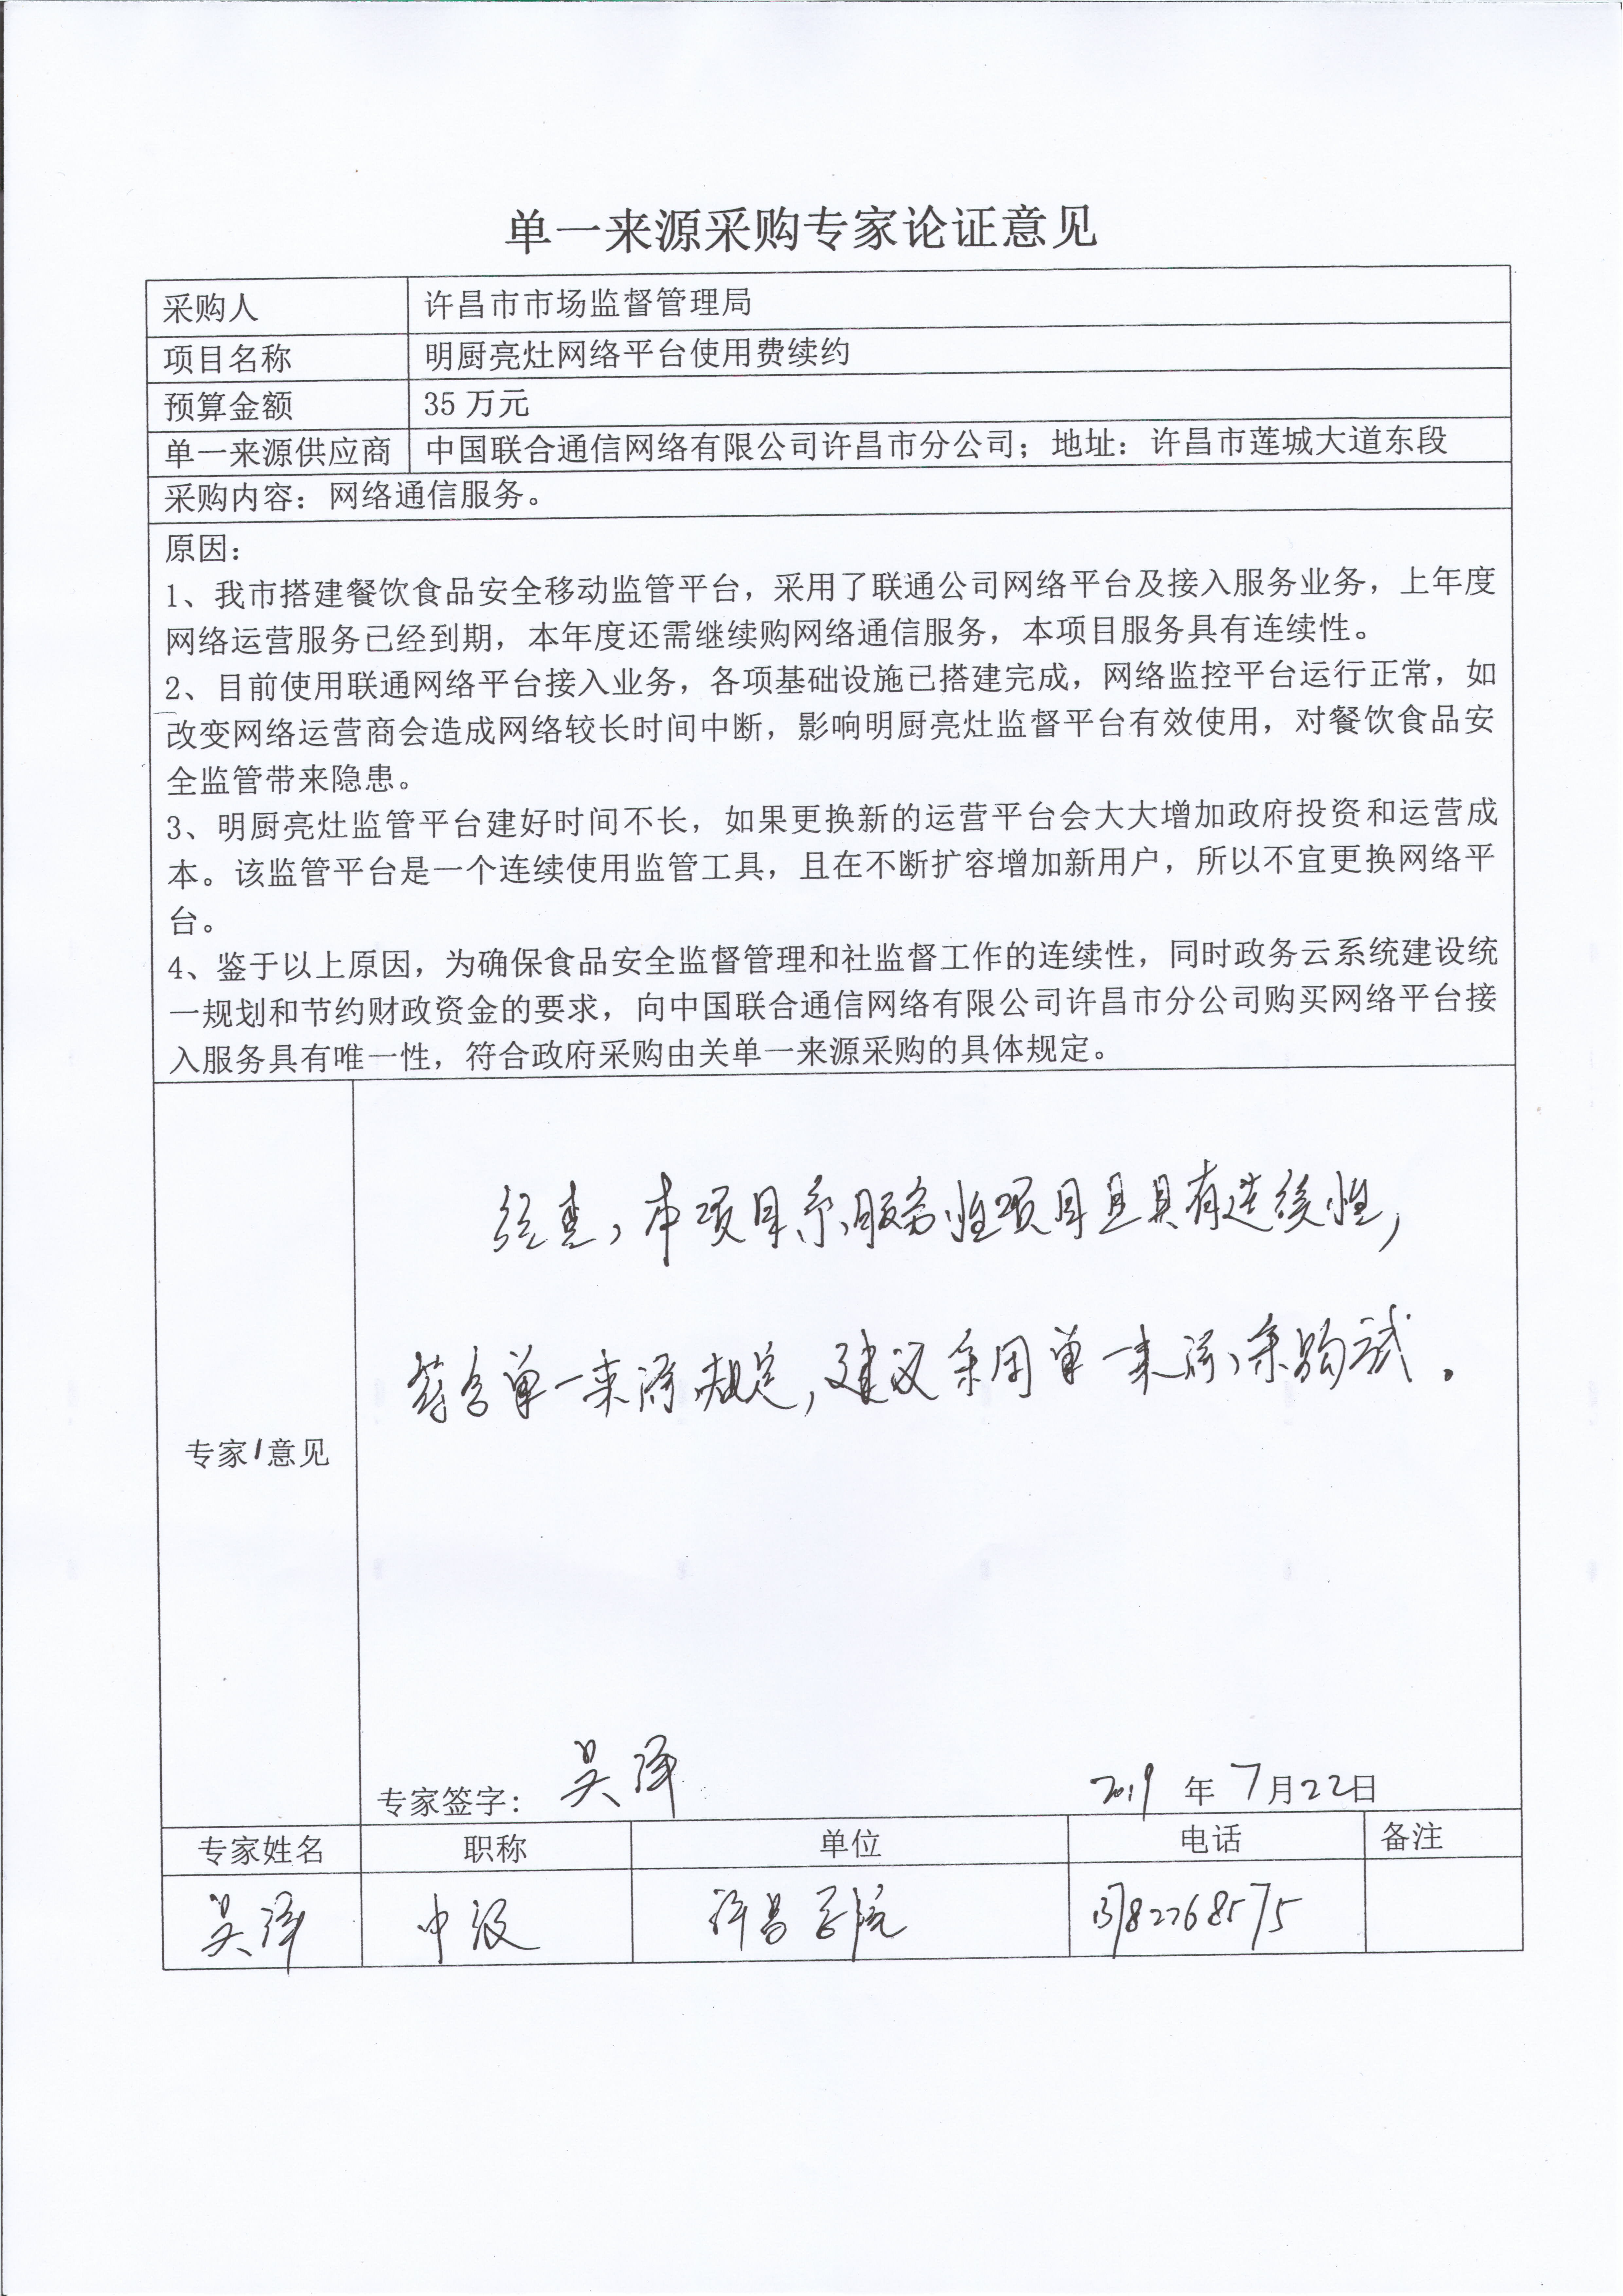 单一来源采购专家论证意见
采购人 许昌市市场监督管理局
项目名称 明厨亮灶网络平台使用费续约
预算金额 35万元
单一来源供应商 中国联合通信网络有限公司许昌市分公司；地址：许昌市莲城大道东段
采购内容：网络通信服务。
原因：
1、我市搭建餐饮食品安全移动监管平台，采用了联通公司网络平台及接入服务业务，上年度
网络运营服务已经到期，本年度还需继续购网络通信服务，本项目服务具有连续性。
2、目前使用联通网络平台接入业务，各项基础设施已搭建完成，网络监控平台运行正常，如
改变网络运营商会造成网络较长时间中断，影响明厨亮灶监督平台有效使用，对餐饮食品安
全监管带来隐患。
3、明厨亮灶监管平台建好时间不长，如果更换新的运营平台会大大增加政府投资和运营成
本。该监管平台是一个连续使用监管工具，且在不断扩容增加新用户，所以不宜更换网络平
台。
4、鉴于以上原因，为确保食品安全监督管理和社监督工作的连续性，同时政务云系统建设统
一规划和节约财政资金的要求，向中国联合通信网络有限公司许昌市分公司购买网络平台接
入服务具有唯一性，符合政府采购由关单一来源采购的具体规定。
经查，本项目系服务性项目且具有连续性，
符合单一来源规定，建议采用单一来源采购式。
专家1意见
专家签字：吴泽 2019年7月22日
专家姓名 职称 单位 电话 备注
吴泽 中级 许昌学院 13782268575